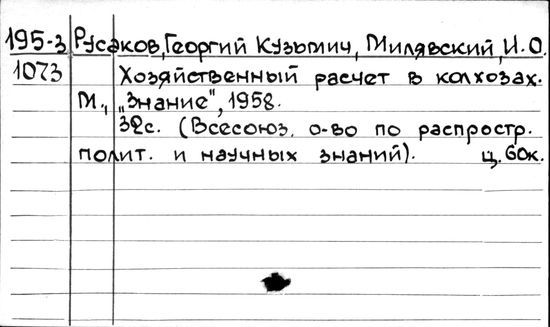 195-3 Русаков, Георгий Кузьмич, Милявский, И.О.
1073 Хозяйственный расчет в колхозах.
М., „Знание", 1958.
32с. (Всесоюз. о-во по распростр.
полит. и научных знаний). ц. 60к.